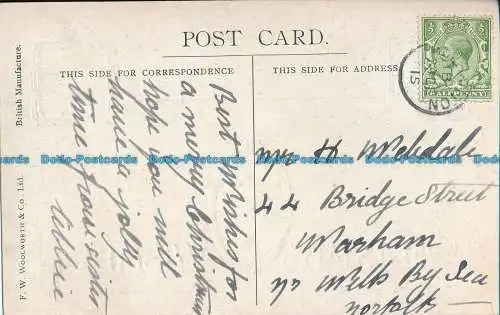 POST CARD.
THIS SIDE FOR CORRESPONDENCE
THIS SIDE FOR ADDRESS
British Manufacture.
F. W. WOOLWORTH & Co., Ltd.
Best Wishes for
a merry Christmas
hope you will
have a jolly
time from sister
HALFPENNY
15
Mr H
44 Bridge Street
Warham
nr Wells By Sea
Norfolk
Dodo-Postcards Dodo-Postcards Dodo-Postcards Dodo-Postcards